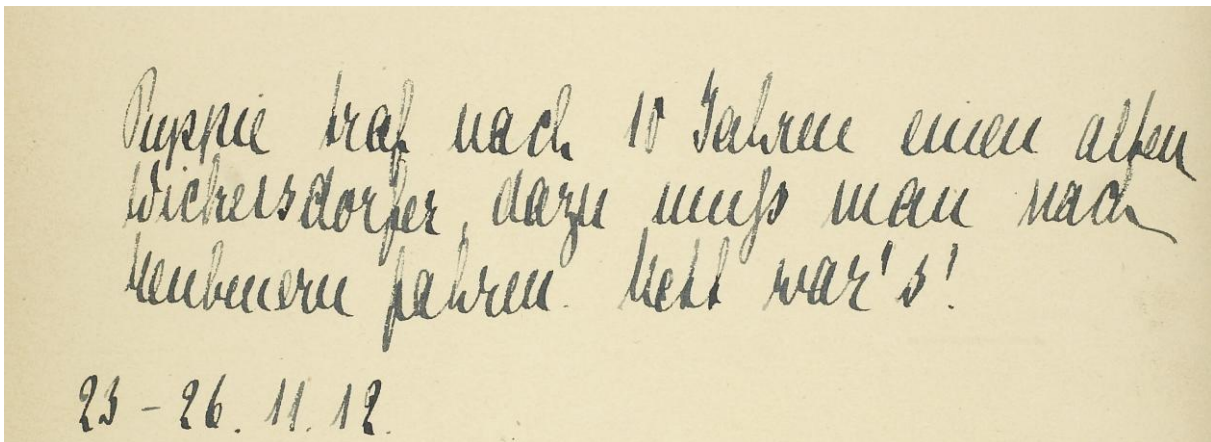 Puppie traf nach 10 Jahren einen alten
Wickersdorfer, dazu muß man nach
Neubeuern fahren. Nett war's!
23-26. 11. 12.